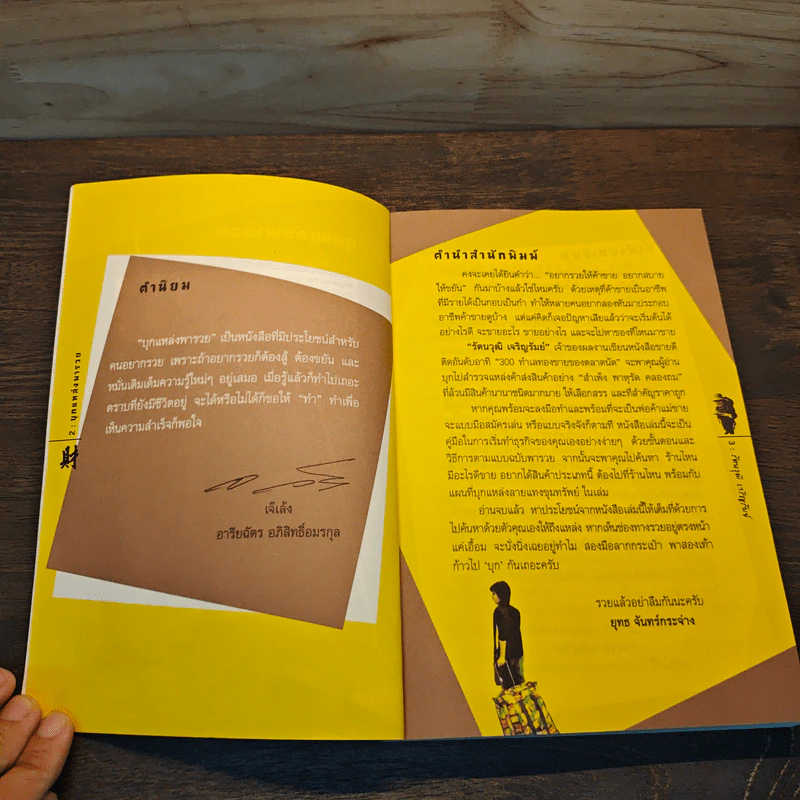 คำนิยม
"บุกแหล่งพารวย" เป็นหนังสือที่มีประโยชน์สำหรับ
คนอยากรวย เพราะถ้าอยากรวยก็ต้องสู้ ต้องขยัน และ
หมั่นเติมเต็มความรู้ใหม่ๆ อยู่เสมอ เมื่อรู้แล้วก็ทำไปเถอะ
ตราบที่ยังมีชีวิตอยู่ จะได้หรือไม่ได้ก็ขอให้ "ทำ" ทำเพื่อ
เห็นความสำเร็จก็พอใจ
เจ๊เล้ง
อารียฉัตร อภิสิทธิ์อมรกุล
2 : บุกแหล่งพารวย
財
คำนำสำนักพิมพ์
คงจะเคยได้ยินคำว่า... "อยากรวยให้ค้าขาย อยากสบาย
ให้ขยัน" กันมาบ้างแล้วใช่ไหมครับ ด้วยเหตุที่ค้าขายเป็นอาชีพ
ที่มีรายได้เป็นกอบเป็นกำ ทำให้หลายคนอยากลองหันมาประกอบ
อาชีพค้าขายดูบ้าง แต่แค่คิดก็เจอปัญหาเสียแล้วว่าจะเริ่มต้นได้
อย่างไรดี จะขายอะไร ขายอย่างไร และจะไปหาของที่ไหนมาขาย
"รัตนวุฒิ เจริญรัมย์" เจ้าของผลงานเขียนหนังสือขายดี
ติดอันดับอาทิ "300 ทำเลทองขายของตลาดนัด" จะพาคุณผู้อ่าน
บุกไปสำรวจแหล่งค้าส่งสินค้าอย่าง "สำเพ็ง พาหุรัด คลองถม"
ที่ล้วนมีสินค้านานาชนิดมากมาย ให้เลือกสรร และที่สำคัญราคาถูก
หากคุณพร้อมจะลงมือทำและพร้อมที่จะเป็นพ่อค้าแม่ขาย
จะแบบมือสมัครเล่น หรือแบบจริงจังก็ตามที หนังสือเล่มนี้จะเป็น
คู่มือในการเริ่มทำธุรกิจของคุณเองอย่างง่ายๆ ด้วยขั้นตอนและ
วิธีการตามแบบฉบับพารวย จากนั้นจะพาคุณไปค้นหา ร้านไหน
มีอะไรดีขาย อยากได้สินค้าประเภทนี้ ต้องไปที่ร้านไหน พร้อมกับ
แผนที่บุกแหล่งลายแทงขุมทรัพย์ ในเล่ม
อ่านจบแล้ว หาประโยชน์จากหนังสือเล่มนี้ให้เต็มที่ด้วยการ
ไปค้นหาด้วยตัวคุณเองให้ถึงแหล่ง หากเห็นช่องทางรวยอยู่ตรงหน้า
แค่เอื้อม จะนั่งนิ่งเฉยอยู่ทำไม สองมือลากกระเป๋า พาสองเท้า
ก้าวไป 'บุก' กันเถอะครับ
รวยแล้วอย่าลืมกันนะครับ
ยุทธ จันทร์กระจ่าง
3 : รัตนวุฒิ เจริญรัมย์